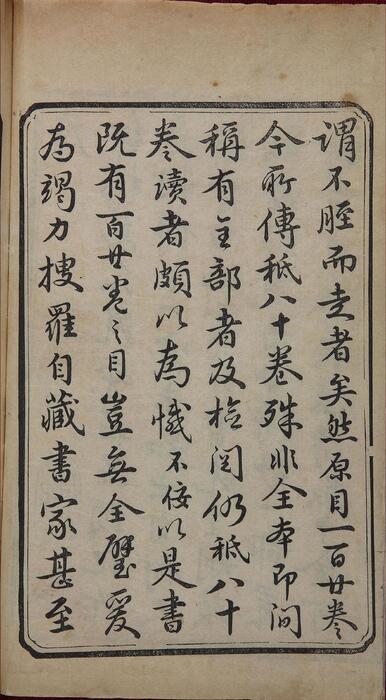 謂不脛而走者矣然原目一百廿卷
今所傳秪八十卷殊非全本即間
稱有全部者及檢閱仍秪八十
卷讀者頗以為憾不佞以是書
既有百廿卷之目豈無全璧爰
為竭力搜羅自藏書家甚至